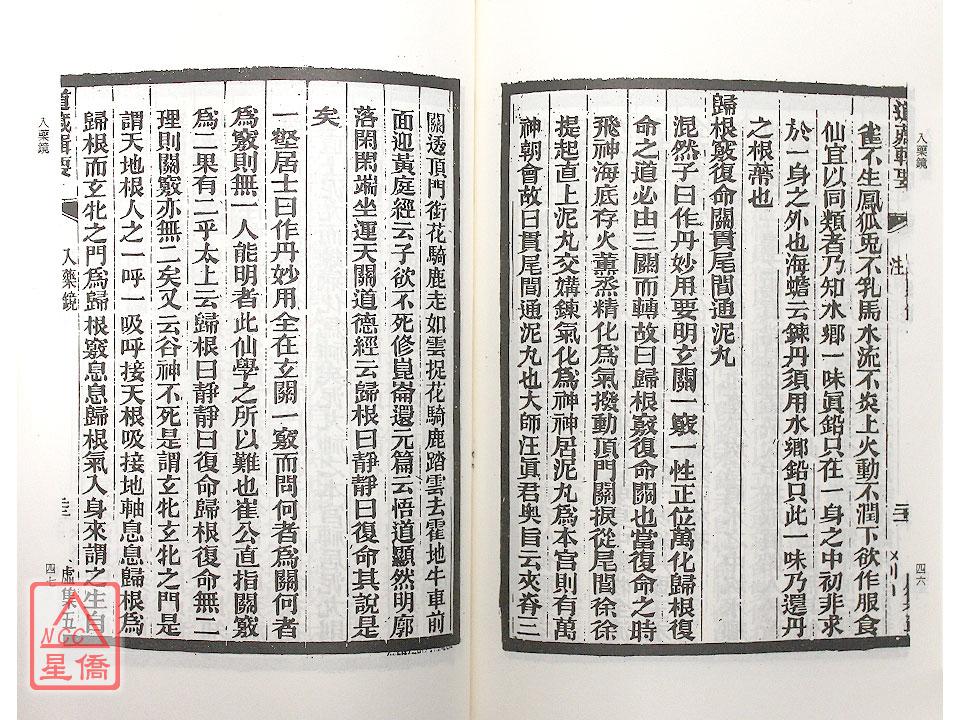 入藥鏡
四六
雀不生鳳狐兎不乳馬水流不炎上火動不潤下欲作服食
仙宜以同類者乃知水鄉一味眞鉛只在一身之中初非求
於一身之外也海蟾云鍊丹須用水鄉鉛只此一味乃還丹
之根蔕也
歸根竅復命關貫尾閭通泥丸
混然子曰作丹妙用要明玄關一竅一性正位萬化歸根復
命之道必由三關而轉故曰歸根竅復命關也當復命之時
飛神海底存火薰蒸精化為氣撥動頂門關捩從尾閭徐徐
提起直上泥丸交媾鍊氣化為神神居泥丸為本宮則有萬
神朝會故曰貫尾閭通泥丸也大師汪眞君奧旨云夾脊三
關透頂門銜花騎鹿走如雲捉花騎鹿踏雲去霍地牛車前
面迎黃庭經云子欲不死修崑崙還元篇云悟道顯然明廓
落閑閑端坐運天關道德經云歸根曰靜靜曰復命其說是
矣
一壑居士曰作丹妙用全在玄關一竅而問何者為關何者
為竅則無一人能明者此仙學之所以難也崔公直指關竅
為二果有二乎太上云歸根曰靜靜曰復命歸根復命無二
理則關竅亦無二矣又云谷神不死是謂玄牝玄牝之門是
謂天地根人之一呼一吸呼接天根吸接地軸息息歸根為
歸根而玄牝之門為歸根竅息息歸根氣入身來謂之生自
道藏輯要
入藥鏡
虛集五
入藥鏡
四七
NCC
星僑